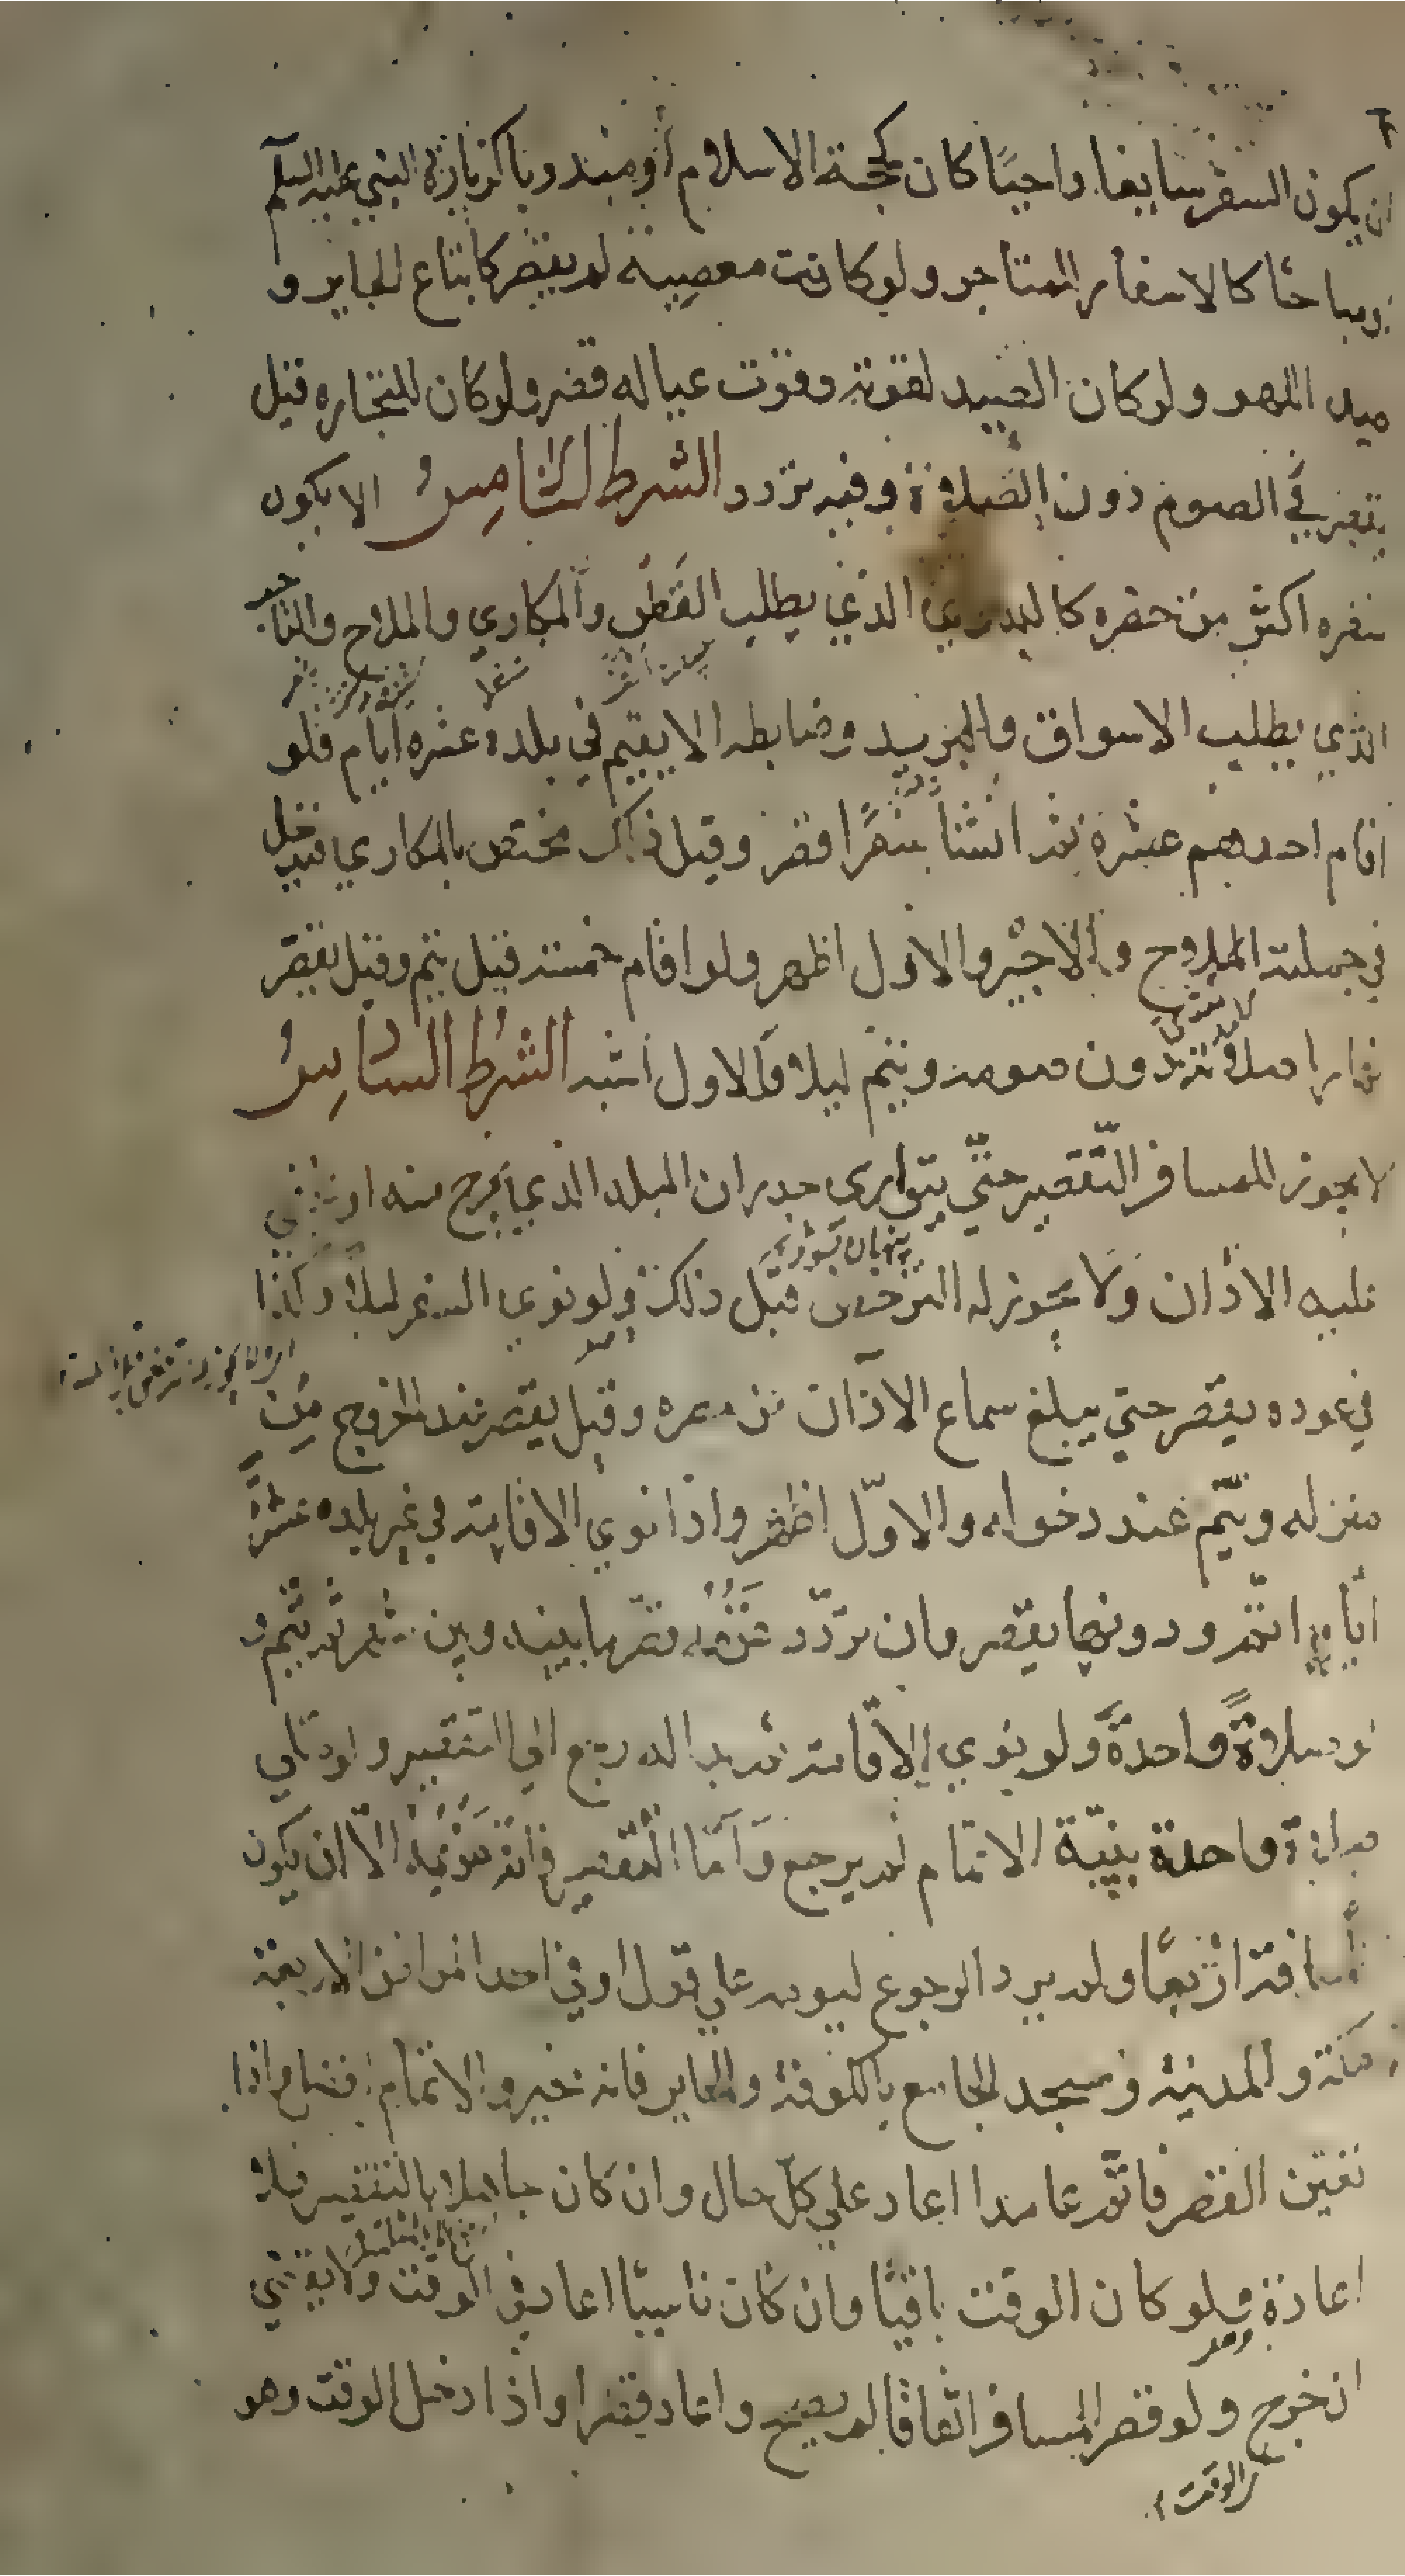 ان يكون السفر سايغا واجبًا كان كحجة الاسلام أو مندوبا كزيارة النبي عليه السلم
او مباحًا كالاسفار للمتاجر ولو كانت معصية لم يقصر كاتباع الجاير و
صيد اللهو ولو كان الصيد لقوته وقوت عياله قصر ولو كان للتجاره قيل
يقصر في الصوم دون الصلوة وفيه تردد الشرط الخامس الا يكون
سفره اكثر من حضره كالبدوي الذي يطلب القطر والمكاري والملاح والتاجر
الذي يطلب الاسواق والبريد وضابطه الا يقيم في بلده عشره ايام فلو
اقام احدهم عشرة ثم انشا سفرًا قصر وقيل ذلك مختص بالمكاري فيدخل
في جملته الملاح والاجير والاول اظهر ولو اقام خمسة قيل يتم وقيل يقصر
نهارا صلوته دون صومه ويتم ليلا والاول اشبه الشرط السادس
لا يجوز للمسافر التقصير حتّي يتوارى جدران البلد الذي يخرج منه او يخفي
عليه الاذان ولا يجوز له الترخص قبل ذلك ولو نوي السفر ليلاً وكذا
في عوده يقصر حتي يبلغ سماع الاذان من مصره وقيل يقصر عند الخروج من
منزله ويتم عند دخوله والاوّل اظهر واذا نوي الاقامة في غير بلده عشرة
ايّام اتم ودونها يقصر وان تردّد عزمه قصر ما بينه وبين شهر ثم يتم و
لو صلاةً واحدةً ولو نوي الاقامة ثم بدا له رجع الي التقصير ولو صلي
صلاة واحدة بنيّة الاتمام لم يرجع وأمّا التقصير فانه عزيمة الّا ان يكون
المسافة اربعًا ولم يرد الرجوع ليومه علي قول او في احد المواطن الاربعة
مكة والمدينة ومسجد الجامع بالكوفة والحاير فانه مخير والاتمام افضل واذا
تعين القصر فاتّم عامدا اعاد علي كلّ حال وان كان جاهلا بالتقصير فلا
اعادة ولو كان الوقت باقيًا وان كان ناسيًا اعاد في الوقت ولا يقضي
ان خرج ولو قصر المسافر اتفاقا لم يصح واعاد قصرا واذا دخل الوقت وهو
الوقت